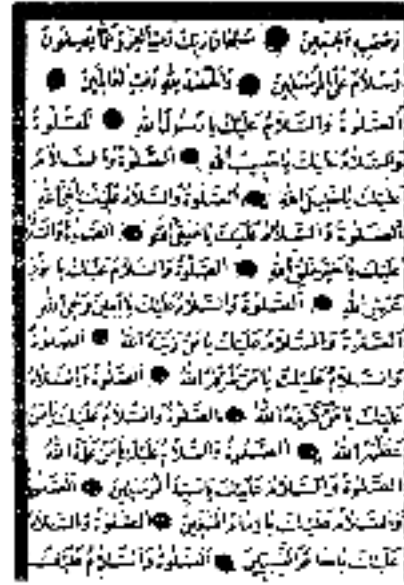 وَصَحْبِهِ أَجْمَعِينَ ● سُبْحَانَ رَبِّكَ رَبِّ الْعِزَّةِ عَمَّا يَصِفُونَ
وَسَلَامٌ عَلَى الْمُرْسَلِينَ ● وَالْحَمْدُ لِلّٰهِ رَبِّ الْعَالَمِينَ ●
اَلصَّلٰوةُ وَالسَّلَامُ عَلَيْكَ يَا رَسُولَ اللهِ ● اَلصَّلٰوةُ
وَالسَّلَامُ عَلَيْكَ يَا حَبِيبَ اللهِ ● اَلصَّلٰوةُ وَالسَّلَامُ
عَلَيْكَ يَا خَلِيلَ اللهِ ● اَلصَّلٰوةُ وَالسَّلَامُ عَلَيْكَ يَا نَبِيَّ اللهِ
اَلصَّلٰوةُ وَالسَّلَامُ عَلَيْكَ يَا صَفِيَّ اللهِ ● اَلصَّلٰوةُ وَالسَّلَامُ
عَلَيْكَ يَا خَيْرَ خَلْقِ اللهِ ● اَلصَّلٰوةُ وَالسَّلَامُ عَلَيْكَ يَا نُورَ
عَرْشِ اللهِ ● اَلصَّلٰوةُ وَالسَّلَامُ عَلَيْكَ يَا أَمِينَ وَحْيِ اللهِ
اَلصَّلٰوةُ وَالسَّلَامُ عَلَيْكَ يَا مَنْ زَيَّنَهُ اللهُ ● اَلصَّلٰوةُ
وَالسَّلَامُ عَلَيْكَ يَا مَنْ شَرَّفَهُ اللهُ ● اَلصَّلٰوةُ وَالسَّلَامُ
عَلَيْكَ يَا مَنْ كَرَّمَهُ اللهُ ● اَلصَّلٰوةُ وَالسَّلَامُ عَلَيْكَ يَا مَنْ
عَظَّمَهُ اللهُ ● اَلصَّلٰوةُ وَالسَّلَامُ عَلَيْكَ يَا مَنْ عَلَّمَهُ اللهُ
اَلصَّلٰوةُ وَالسَّلَامُ عَلَيْكَ يَا سَيِّدَ الْمُرْسَلِينَ ● اَلصَّلٰوةُ
وَالسَّلَامُ عَلَيْكَ يَا إِمَامَ الْمُتَّقِينَ ● اَلصَّلٰوةُ وَالسَّلَامُ
عَلَيْكَ يَا خَاتَمَ النَّبِيِّينَ ● اَلصَّلٰوةُ وَالسَّلَامُ عَلَيْكَ